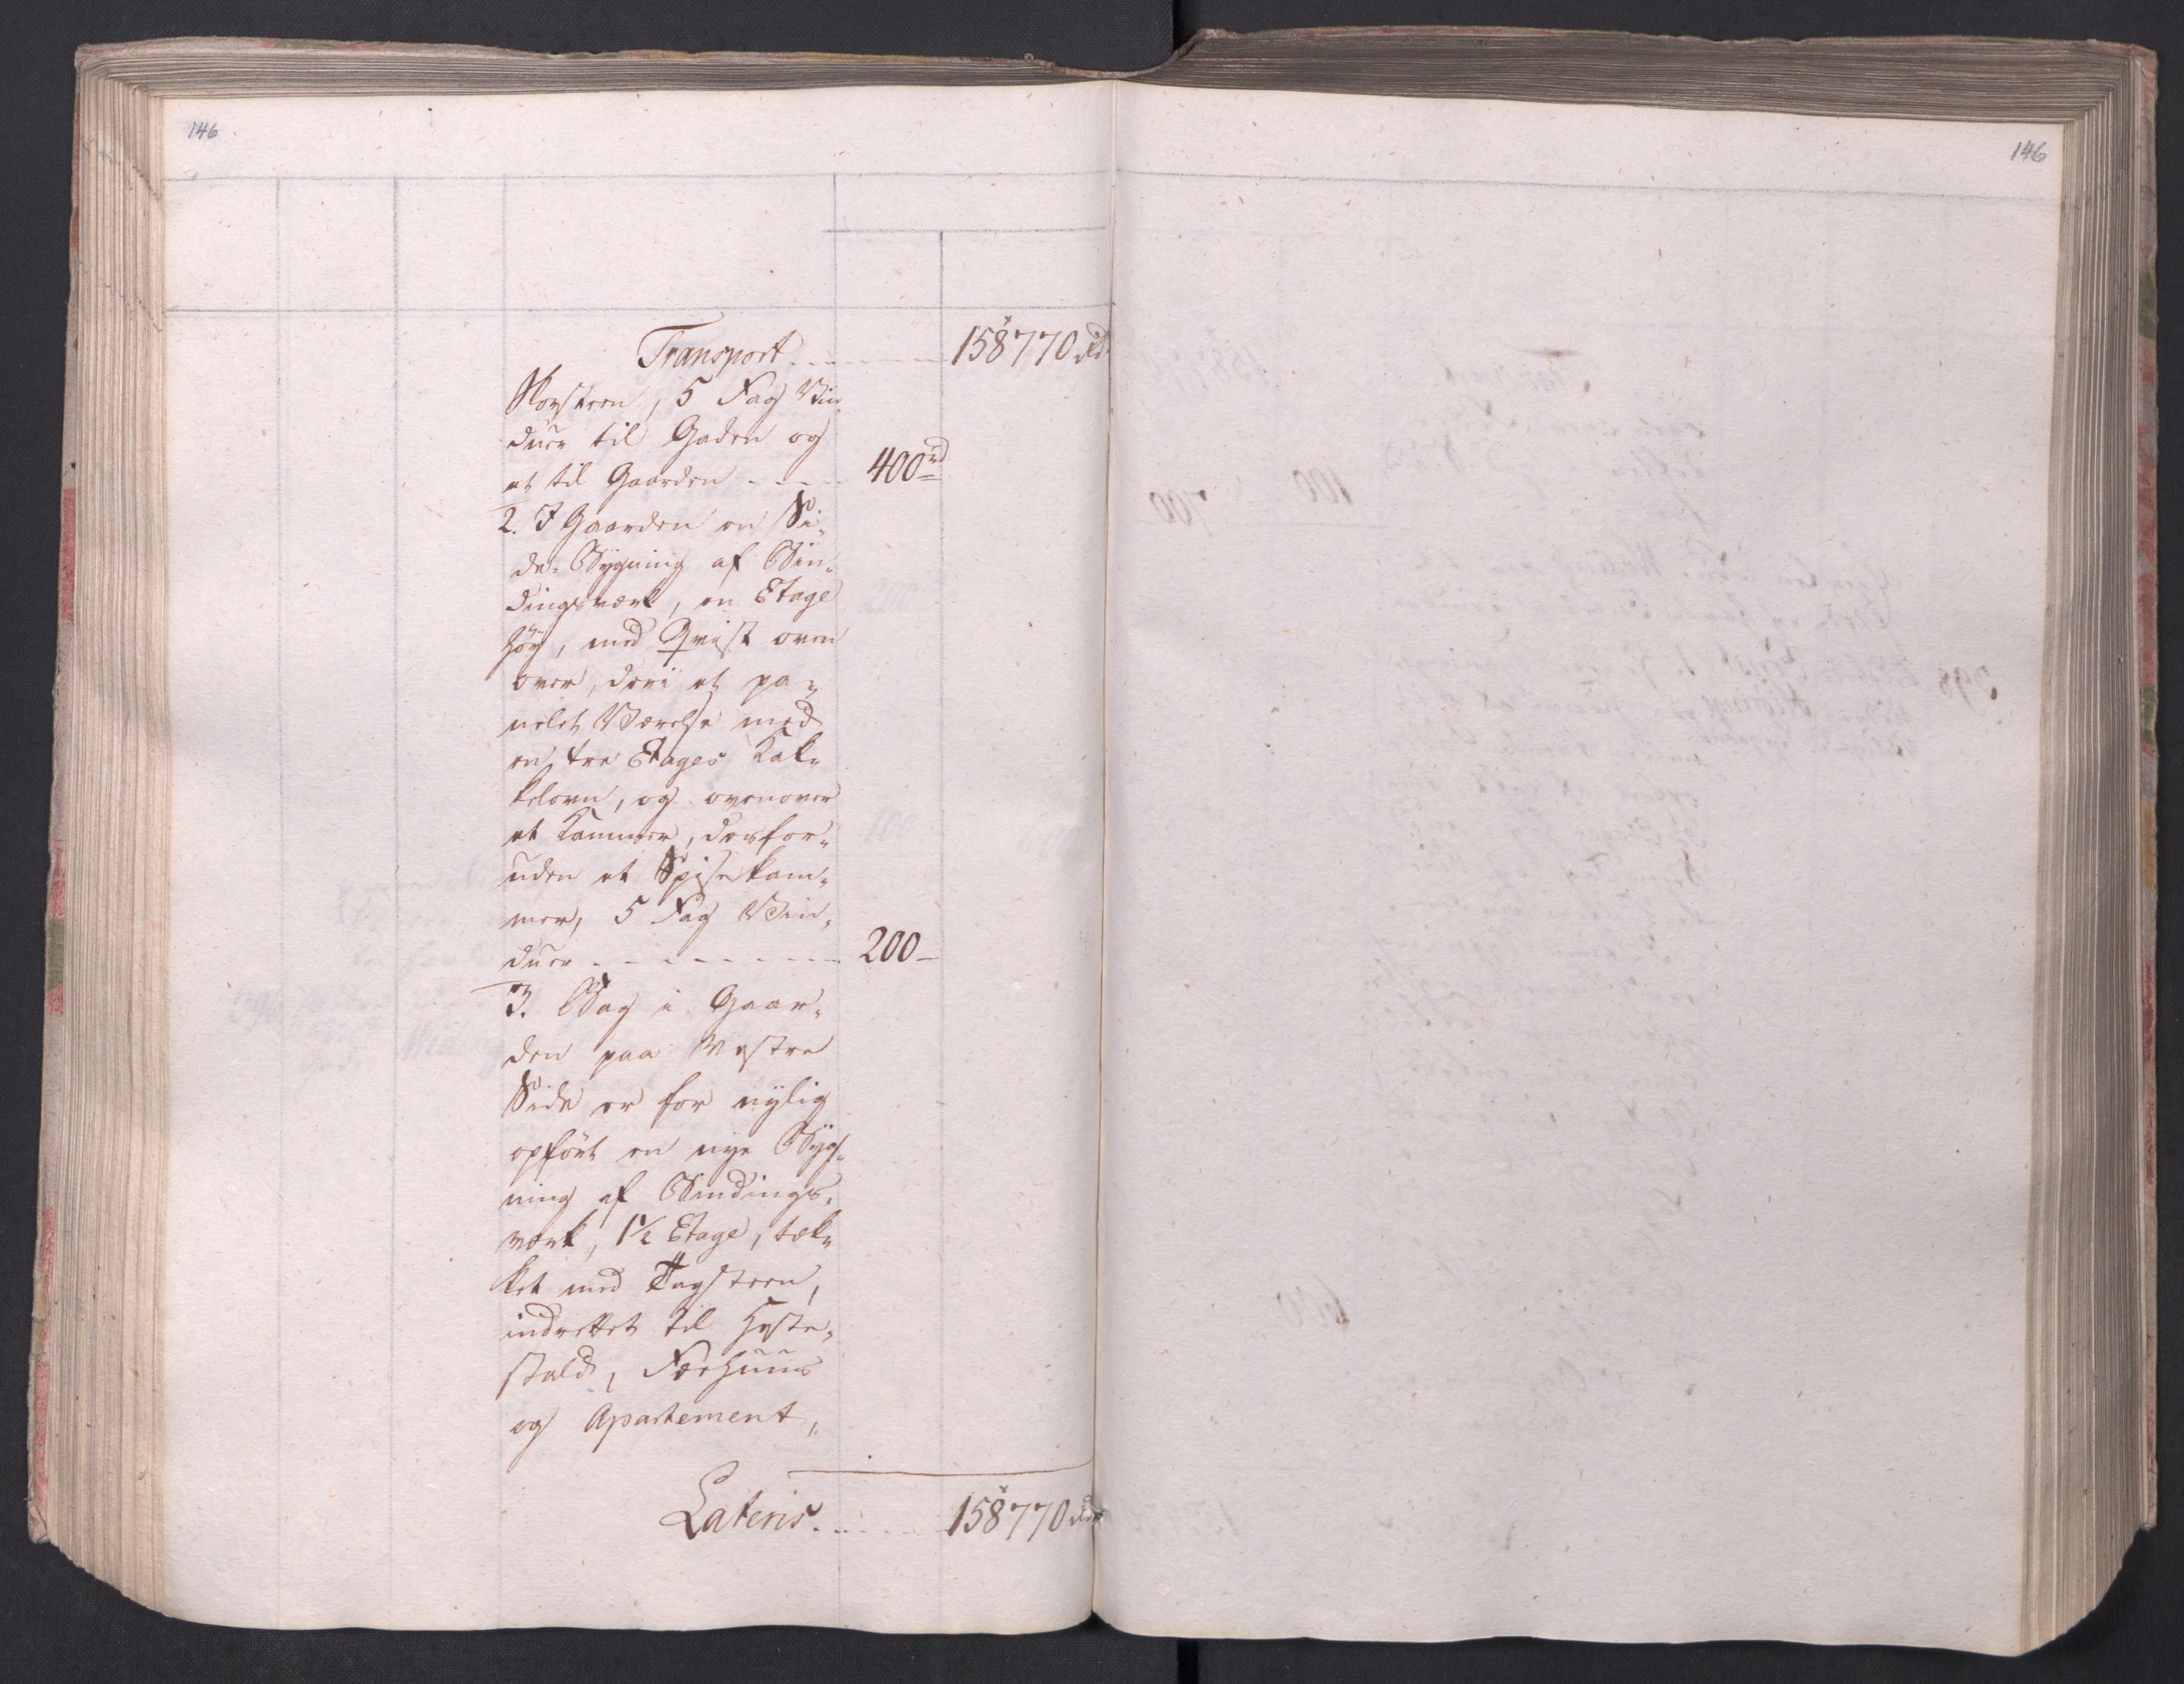 146
146
Transport - - - - - - 158770 rd
Skorsteen, 5 Fag Vin-
duer til Gaden og
et til Gaarden - - - - 400 rd
2. I Gaarden en Si-
de-Bygning af Bin-
dingsværk, en Etage
høy, med Qvist oven
over, deri et pa-
nelet Værelse med
en tre Etages Kak-
kelovn, og ovenover
et Kammer, desfor-
uden et Spisekam-
mer, 5 Fag Vin-
duer - - - - - - - - 200 -
3. Bag i Gaar-
den paa Vestre
Side er for nylig
opført en nye Byg-
ning af Bindings-
værk, 1½ Etage, tæk-
ket med Tagsteen,
indrettet til Heste-
stald, Færhuus
og Apartement,
Lateris - - - - - 158770 rd